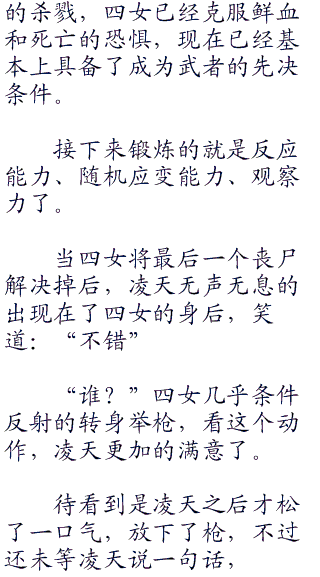 的杀戮，四女已经克服鲜血
和死亡的恐惧，现在已经基
本上具备了成为武者的先决
条件。
接下来锻炼的就是反应
能力、随机应变能力、观察
力了。
当四女将最后一个丧尸
解决掉后，凌天无声无息的
出现在了四女的身后，笑
道：“不错”
“谁？”四女几乎条件
反射的转身举枪，看这个动
作，凌天更加的满意了。
待看到是凌天之后才松
了一口气，放下了枪，不过
还未等凌天说一句话，